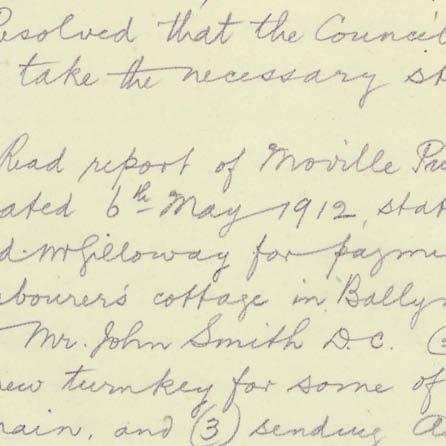 Resolved that the Council
take the necessary st
Read report of Moville Pa
ated 6th May 1912, stat
d. McGilloway for payme
abourer's cottage in Bally
Mr. John Smith D.C. (
new turnkey for some of
main, and (3) sending a